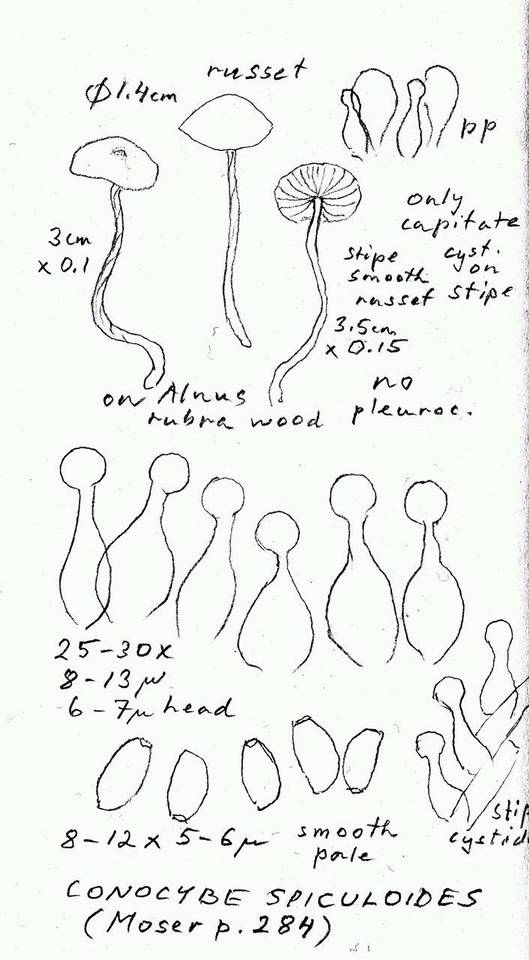 russet
Ø1.4cm
pp
only
capitate
cyst.
on
stipe
3cm
x 0.1
stipe
smooth
russet
3.5cm
x 0.15
on Alnus
rubra wood
no
pleuroc.
25-30x
8-13 µ
6-7µ head
8-12 x 5-6µ
smooth
pale
stip
cystid
CONOCYBE SPICULOIDES
(Moser p.284)